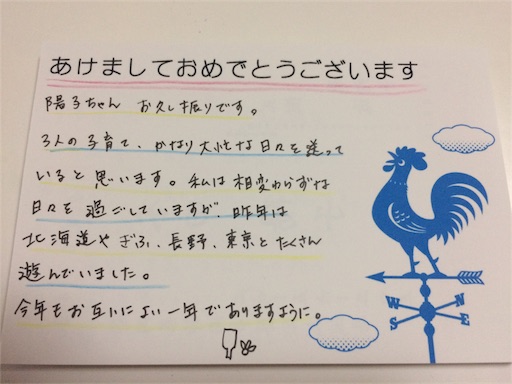 あけましておめでとうございます
陽子ちゃん お久し振りです。
3人の子育て、かなり大忙な日々を送って
いると思います。私は相変わらずな
日々を過ごしていますが、昨年は
北海道やぎふ、長野、東京とたくさん
遊んでいました。
今年もお互いによい一年でありますように。
W N
S E